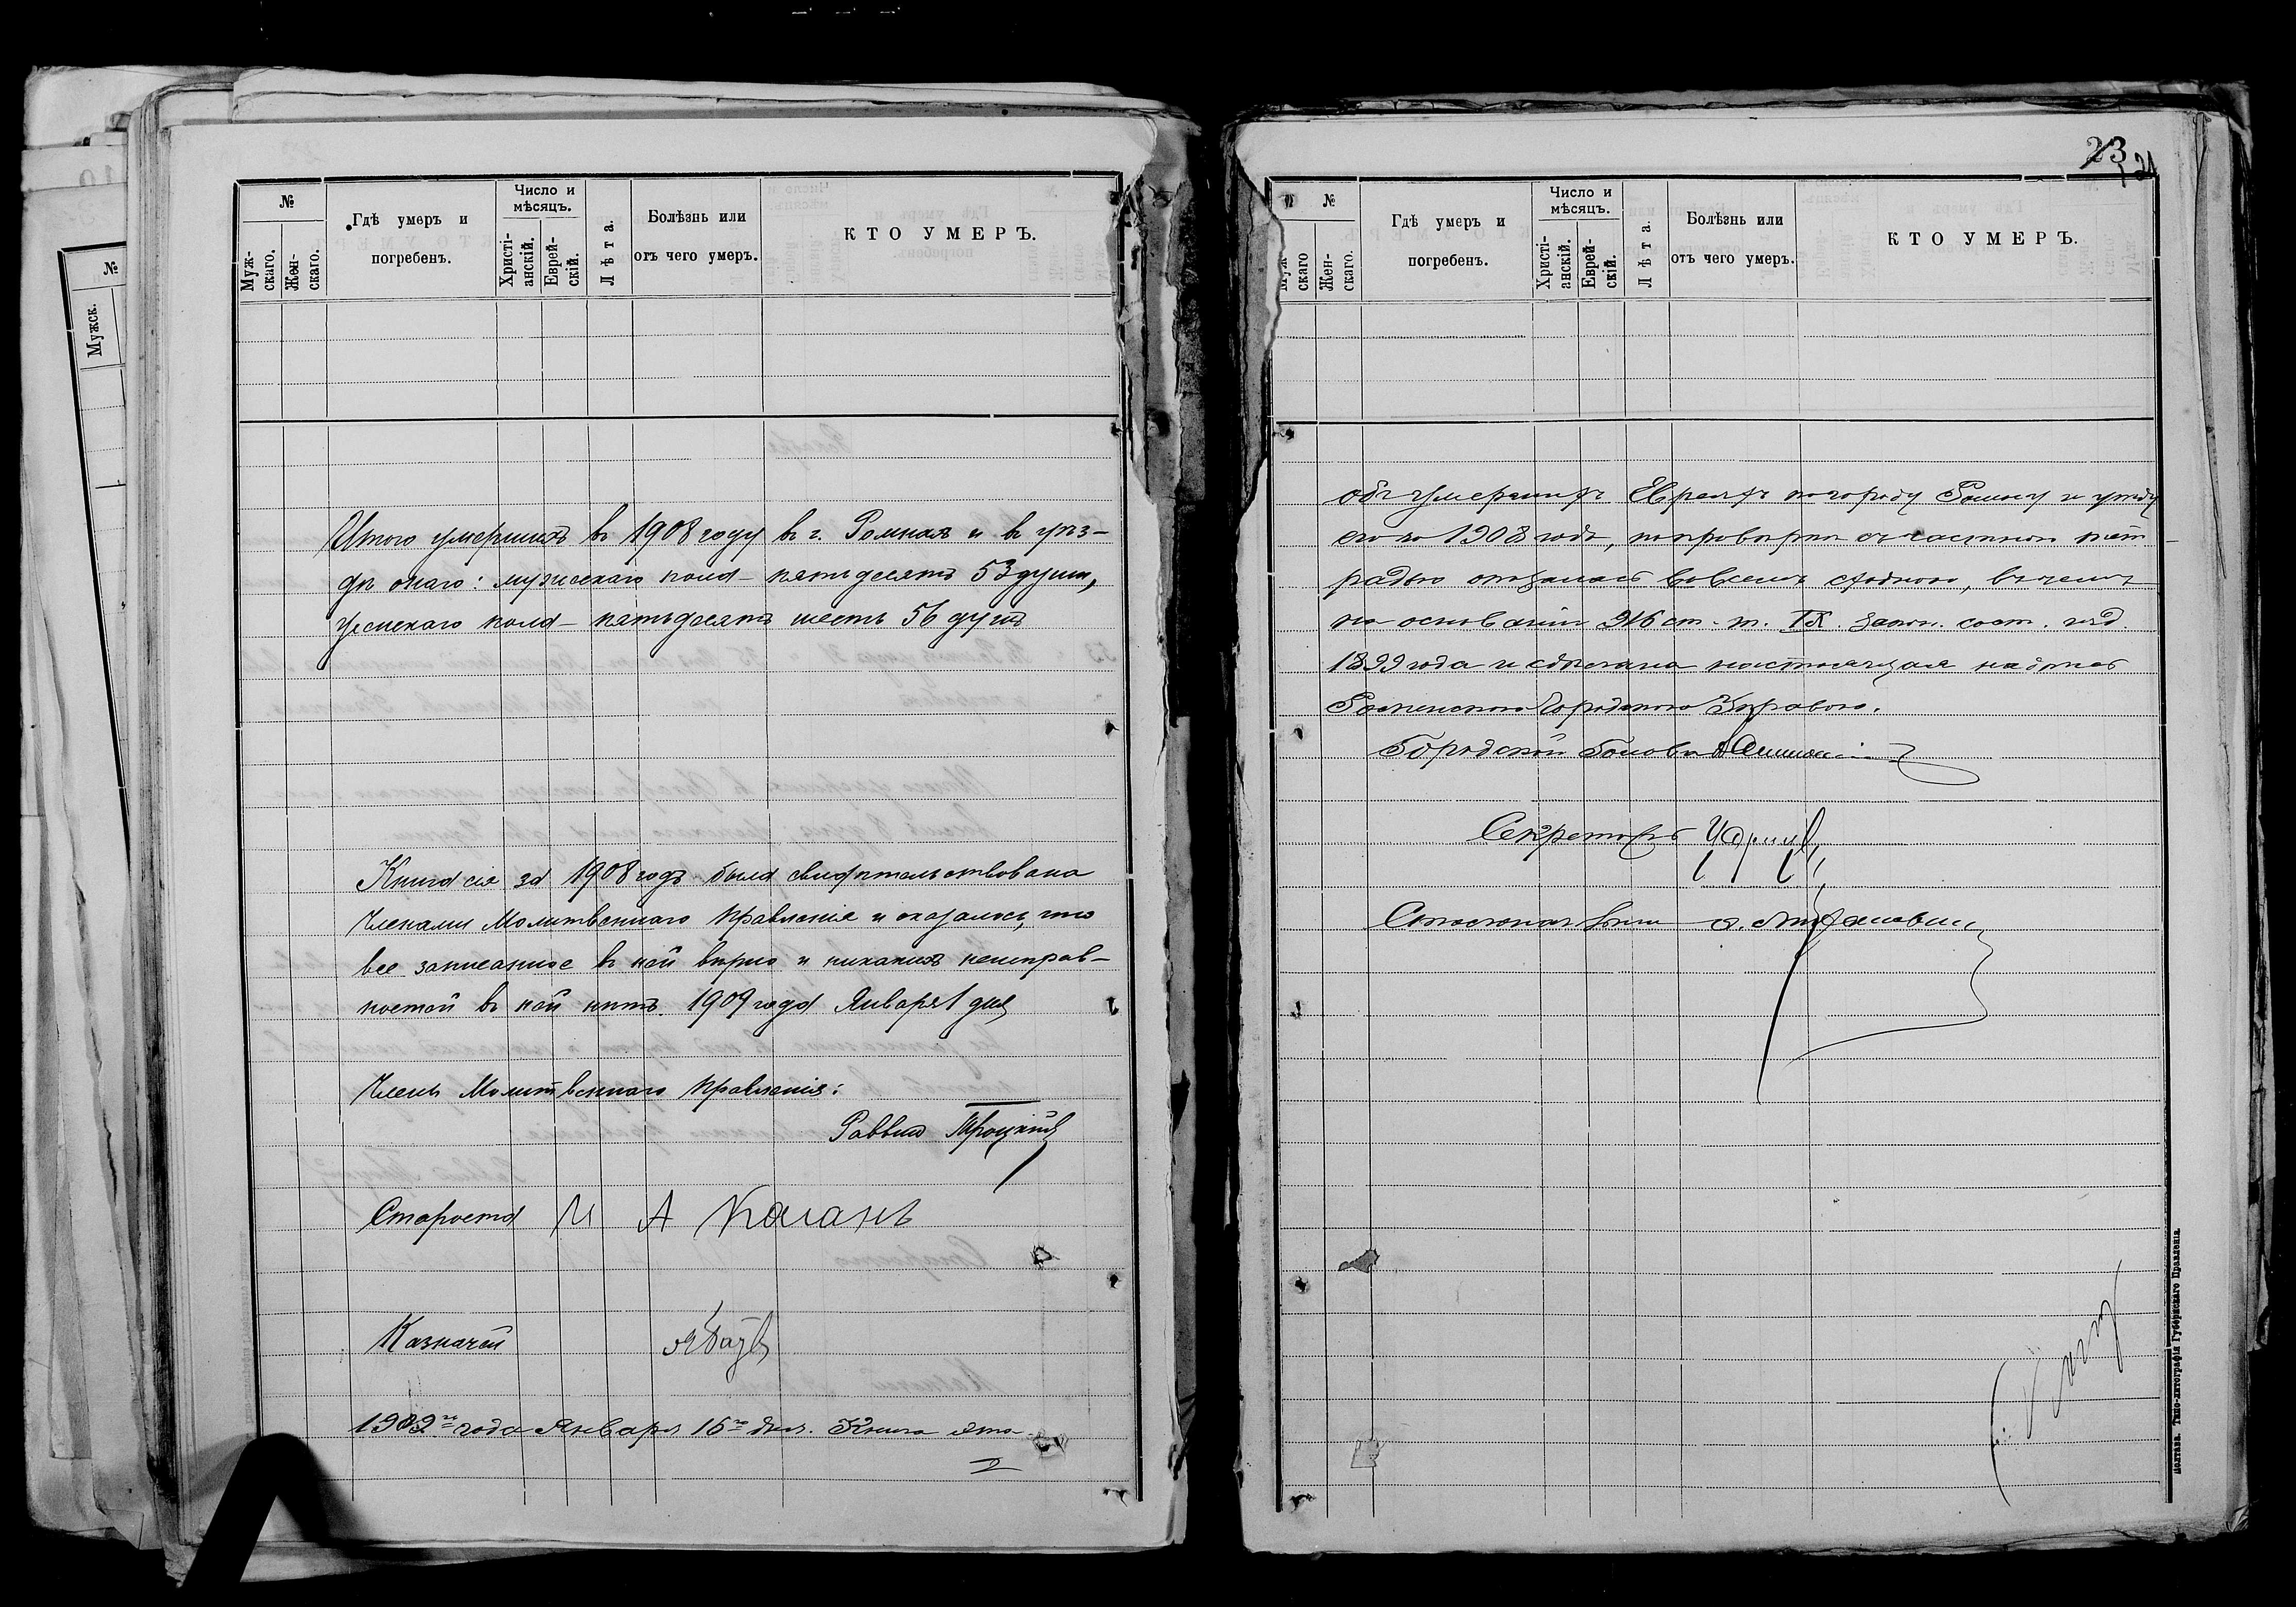 №
Муж-
скаго.
Жен-
скаго.
Гдѣ умеръ и
погребенъ.
Число и
мѣсяцъ.
Христі-
анскій.
Еврей-
скій.
Лѣта.
Болѣзнь или
отъ чего умеръ.
КТО УМЕРЪ.
Итого умершихъ въ 1908 году въ г. Ромнахъ и въ уѣз-
дѣ онаго: мужескаго пола — пятьдесятъ 53 душъ,
женскаго пола — пятьдесятъ шесть 56 душъ
Книга сія за 1908 годъ была свидѣтельствована
Членами Молитвеннаго Правленія и оказалось, что
все записанное въ ней вѣрно и никакихъ неисправ-
ностей въ ней нѣтъ. 1909 года Января 1 дня
Члены Молитвеннаго Правленія:
Раввинъ Троцкій
Староста И А Каганъ
Казначей
1909го года Января 15го дня. Книга эта
№
Мужск.
23
21
№
Муж
скаго
Жен-
скаго.
Гдѣ умеръ и
погребенъ.
Число и
мѣсяцъ.
Христі-
анскій.
Еврей-
скій.
Лѣта.
Болѣзнь или
отъ чего умеръ.
КТО УМЕРЪ.
объ умершихъ Евреяхъ по городу Ромну и уѣзду
его за 1908 годъ, по провѣркѣ съ частною тет-
радью оказалась во всемъ сходною, въ чемъ
на основаніи 916 ст. т. IX. закон. сост. изд.
1899 года и сдѣлана настоящая надпись
Роменскою Городскою Управою.
Городской Голова
Секретарь
Столоначальникъ
Полтава. Типо-литографія Губернскаго Правленія.